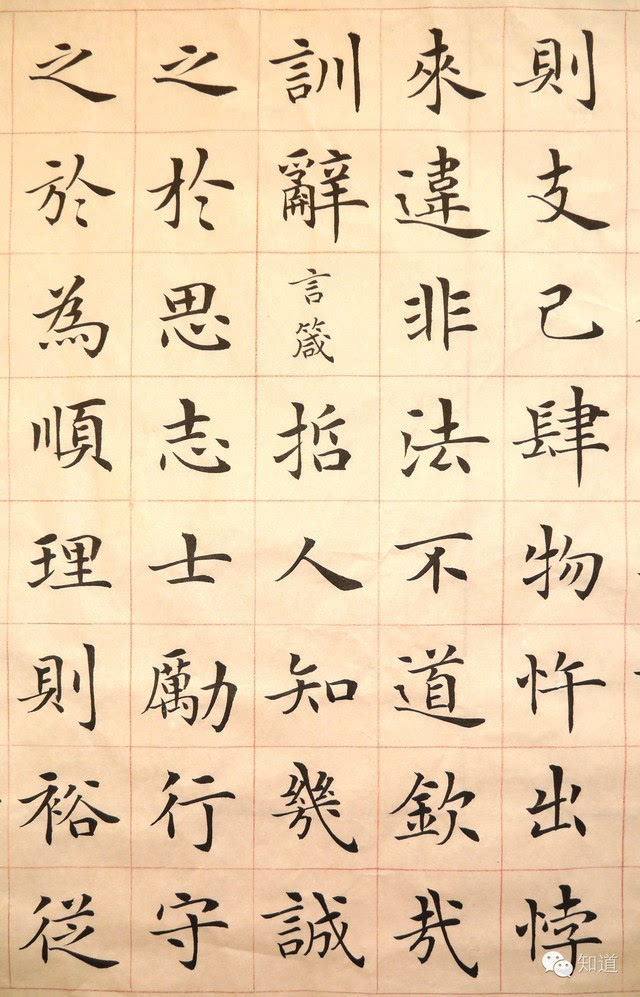 則支己肆物忤出悖
來違非法不道欽哉
訓辭言箴哲人知幾誠
之於思志士勵行守
之於為順理則裕從
知道